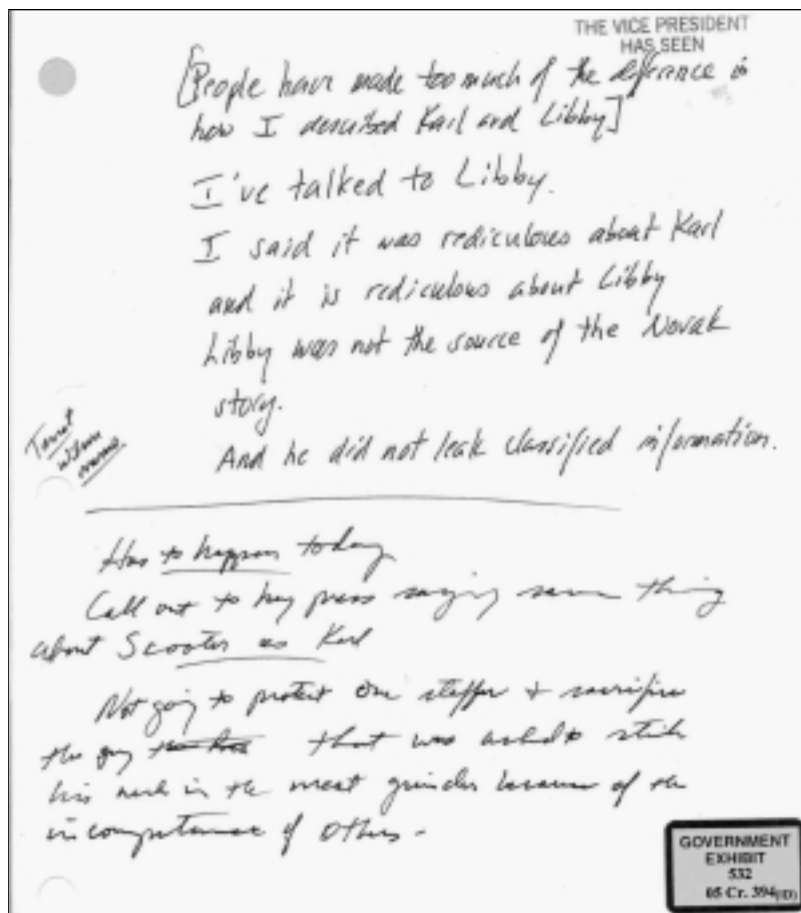 THE VICE PRESIDENT
HAS SEEN
[People have made too much of the deferance in
how I described Karl and Libby]
I've talked to Libby.
I said it was rediculous about Karl
and it is rediculous about Libby
Libby was not the source of the Novak
story.
And he did not leak classified information.
Tenet
Wilson
memo
Has to happen today
Call out to key press saying same thing
about Scooter as Karl
Not going to protect one staffer + sacrifice
the guy that was asked to stick
his neck in the meat grinder because of the
incompetence of others -
GOVERNMENT
EXHIBIT
532
05 Cr. 394 (ID)